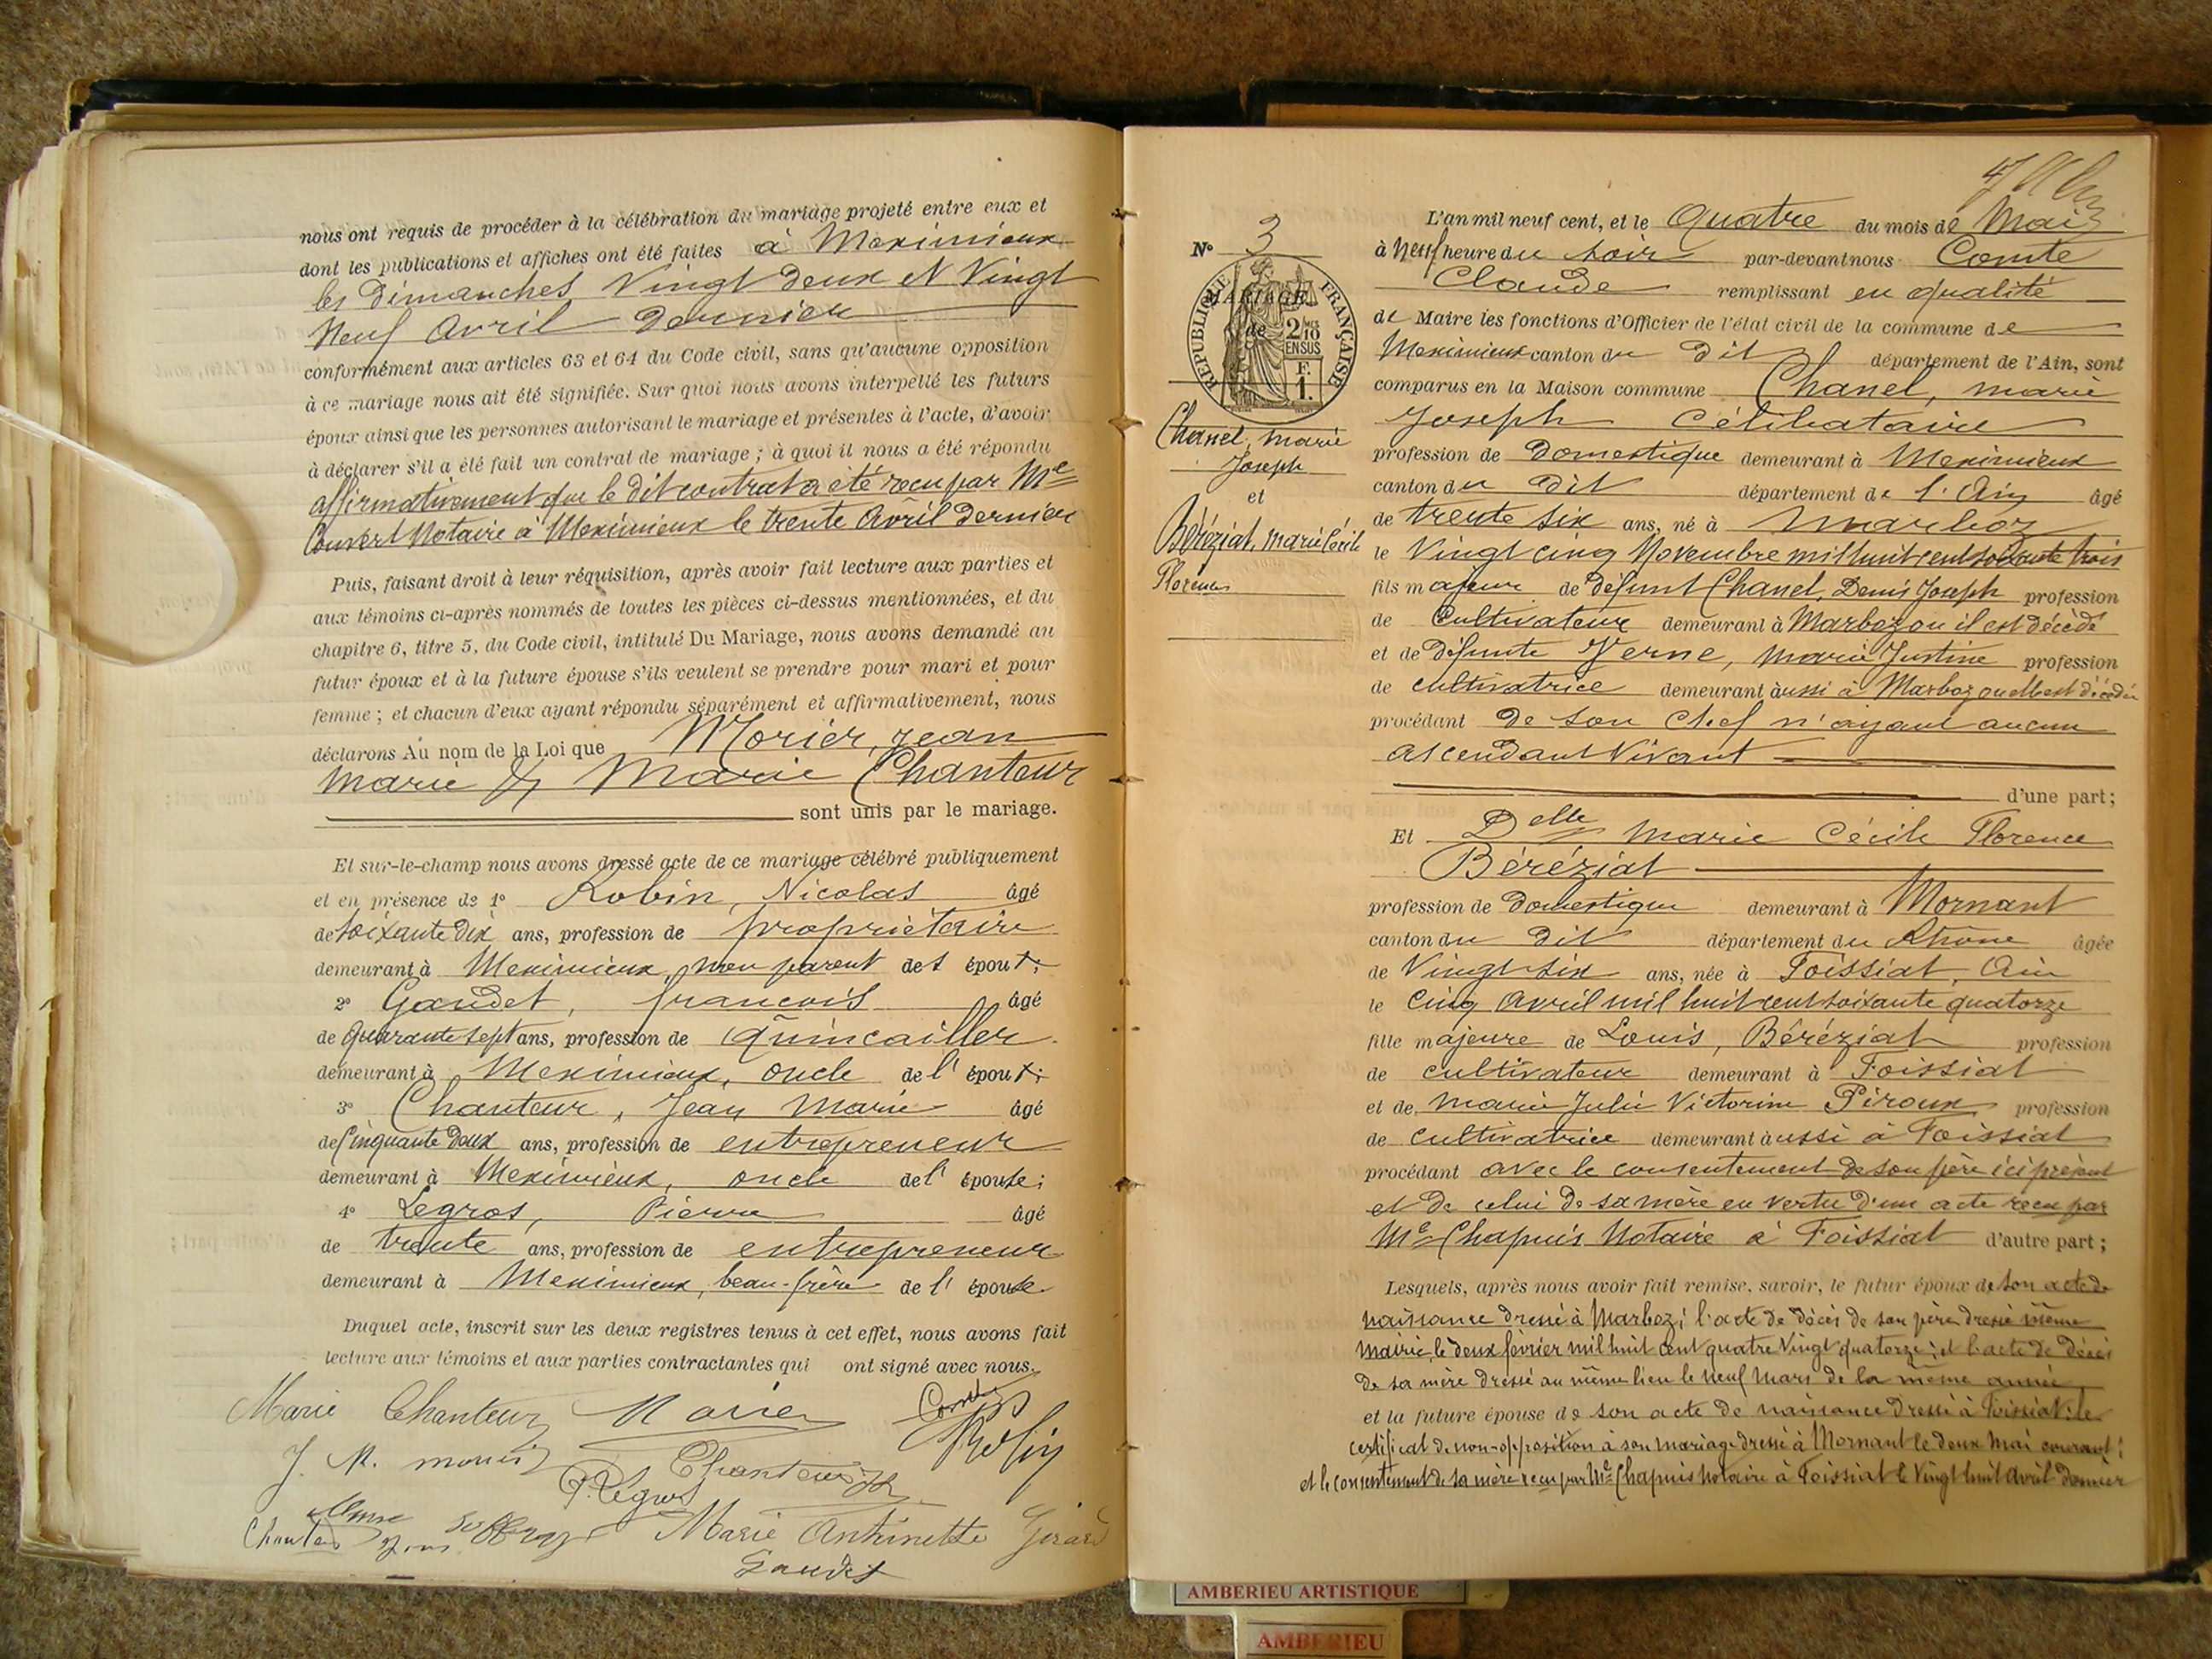 nous ont requis de procéder à la célébration du mariage projeté entre eux et
dont les publications et affiches ont été faites à Meximieux
les Dimanches Vingt Deux et Vingt
Neuf Avril Dernier
conformément aux articles 63 et 64 du Code civil, sans qu'aucune opposition
à ce mariage nous ait été signifiée. Sur quoi nous avons interpellé les futurs
époux ainsi que les personnes autorisant le mariage et présentes à l'acte, d'avoir
à déclarer s'il a été fait un contrat de mariage ; à quoi il nous a été répondu
affirmativement que le dit contrat a été reçu par Me
Couvert Notaire à Meximieux le trente Avril Dernier
Puis, faisant droit à leur réquisition, après avoir fait lecture aux parties et
aux témoins ci-après nommés de toutes les pièces ci-dessus mentionnées, et du
chapitre 6, titre 5, du Code civil, intitulé Du Mariage, nous avons demandé au
futur époux et à la future épouse s'ils veulent se prendre pour mari et pour
femme ; et chacun d'eux ayant répondu séparément et affirmativement, nous
déclarons Au nom de la Loi que Morier, Jean
Marie & Marie Chanteur
sont unis par le mariage.
Et sur-le-champ nous avons dressé acte de ce mariage célébré publiquement
et en présence de 1° Robin, Nicolas âgé
de soixante dix ans, profession de propriétaire
demeurant à Meximieux, non parent des époux;
2° Gaudet, françois âgé
de quarante sept ans, profession de quincailler
demeurant à Meximieux, oncle de l'époux;
3° Chanteur, Jean Marie âgé
de Cinquante Deux ans, profession de entrepreneur
demeurant à Meximieux, oncle de l' épouse;
4° Legros, Pierre âgé
de trente ans, profession de entrepreneur
demeurant à Meximieux, beau-frère de l' épouse
Duquel acte, inscrit sur les deux registres tenus à cet effet, nous avons fait
lecture aux témoins et aux parties contractantes qui ont signé avec nous.
Marie Chanteur Morier Comte
J. M. Robin
P. Legros Chanteur
Chanteur Marie Antoinette Girard
Gaudet
N° 3
MARIAGE
de
RÉPUBLIQUE FRANÇAISE
2/10 EN SUS
F. 1.
Chanel, marie
Joseph
et
Béréziat, marie Cécile
Florence
L'an mil neuf cent, et le Quatre du mois de Mai
à Neuf heure du soir par-devant nous Comte
Claude remplissant en qualité
de Maire les fonctions d'Officier de l'état civil de la commune de
Meximieux canton du Dit département de l'Ain, sont
comparus en la Maison commune Chanel, marie
Joseph Célibataire
profession de Domestique demeurant à Meximieux
canton du Dit département de l'Ain âgé
de trente six ans, né à Marboz
le Vingt cinq Novembre mil huit cent soixante trois
fils majeur de défunt Chanel, Denis Joseph profession
de Cultivateur demeurant à Marboz ou il est décédé
et de Défunte Verne, Marie Justine profession
de cultivatrice demeurant aussi à Marboz ou elle est décédée
procédant de son Chef n'ayant aucun
ascendant Vivant
d'une part;
Et Delle Marie Cécile Florence
Béréziat
profession de Domestique demeurant à Mornant
canton du Dit département du Rhône âgée
de Vingt six ans, née à Foissiat, Ain
le Cinq Avril mil huit cent soixante quatorze
fille majeure de Louis, Béréziat profession
de cultivateur demeurant à Foissiat
et de Marie Julie Victorine Piroux profession
de cultivatrice demeurant aussi à Foissiat
procédant avec le consentement de son père ici présent
et de celui de sa mère en vertu d'un acte reçu par
Me Chapuis Notaire à Foissiat d'autre part;
Lesquels, après nous avoir fait remise, savoir, le futur époux de son acte de
naissance dressé à Marboz; l'acte de décès de son père dressé même
mairie, le deux février mil huit cent quatre Vingt quatorze; et l'acte de Décès
de sa mère dressé au même lieu le neuf mars de la même année
et la future épouse de son acte de naissance dressé à Foissiat; le
certificat de non-opposition à son mariage dressé à Mornant le deux mai courant;
et le consentement de sa mère reçu par Me Chapuis Notaire à Foissiat le Vingt huit avril dernier
AMBERIEU ARTISTIQUE
AMBERIEU